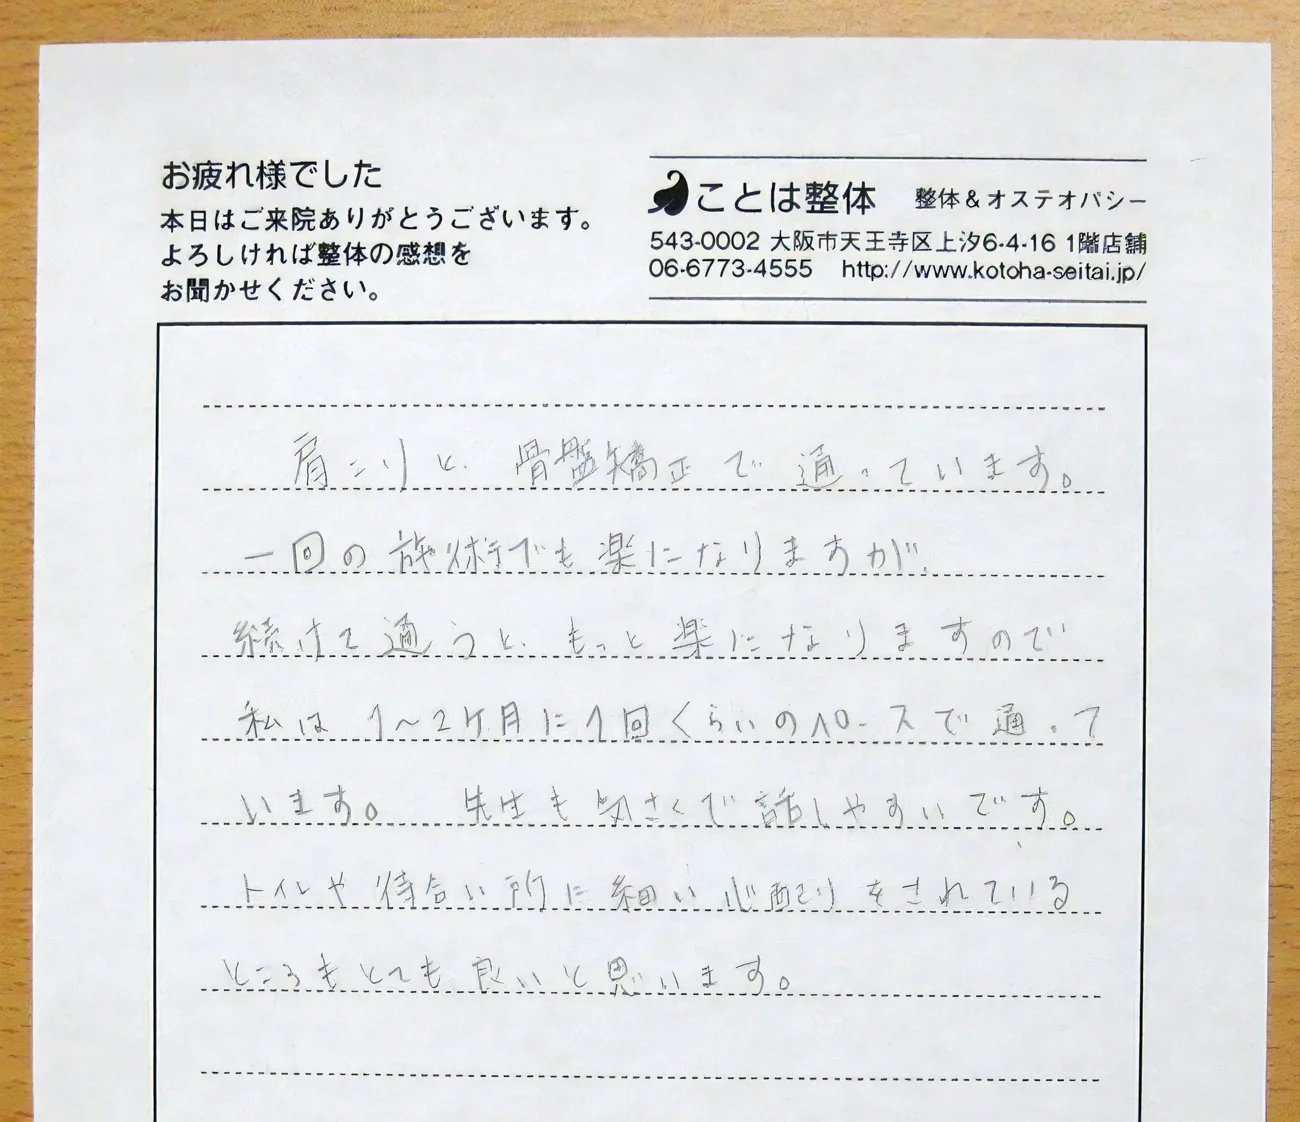 お疲れ様でした
本日はご来院ありがとうございます。
よろしければ整体の感想を
お聞かせください。
ことは整体 整体&オステオパシー
543-0002 大阪市天王寺区上汐6-4-16 1階店舗
06-6773-4555 http://www.kotoha-seitai.jp/
肩こりと、骨盤矯正で通っています。
一回の施術でも楽になりますが、
続けて通うと、もっと楽になりますので
私は1〜2ケ月に1回くらいのペースで通って
います。 先生も気さくで話しやすいです。
トイレや待合い所に細い心配りをされている
ところもとても良いと思います。